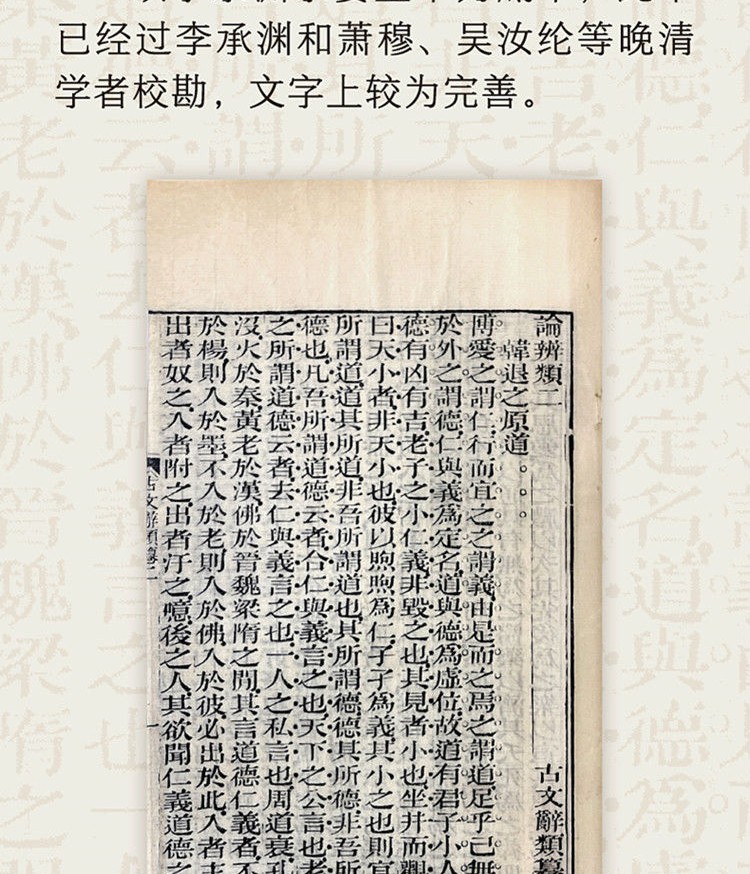 已经过李承渊和萧穆、吴汝纶等晚清
学者校勘，文字上较为完善。
論辨類二 古文辭類纂
韓退之原道
博愛之謂仁行而宜之之謂義由是而之焉之謂道足乎己無
於外之謂德仁與義爲定名道與德爲虛位故道有君子小人
德有凶有吉老子之小仁義非毀之也其見者小也坐井而觀
曰天小者非天小也彼以煦煦爲仁孑孑爲義其小之也則宜
所謂道道其所道非吾所謂道也其所謂德德其所德非吾所
德也凡吾所謂道德云者合仁與義言之也天下之公言也老
之所謂道德云者去仁與義言之也一人之私言也周道衰孔
沒火於秦黃老於漢佛於晉魏梁隋之閒其言道德仁義者不
於楊則入於墨不入於老則入於佛入於彼必出於此入者主
出者奴之入者附之出者汙之噫後之人其欲聞仁義道德之
古文辭類纂二